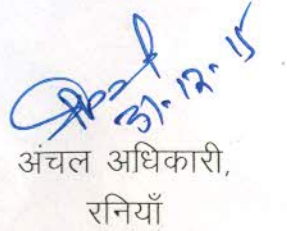 31-12-15
अंचल अधिकारी,
रनियाँ